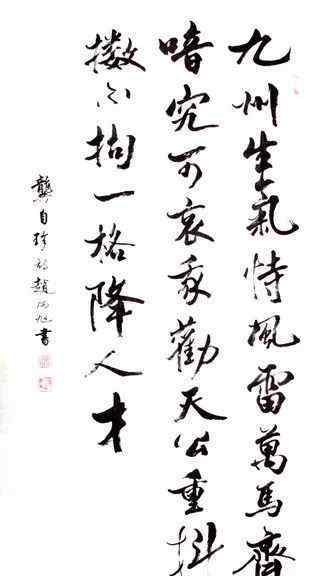 九州生氣恃風雷萬馬齊
喑究可哀我勸天公重抖
擻不拘一格降人才
龔自珍詩趙旭書